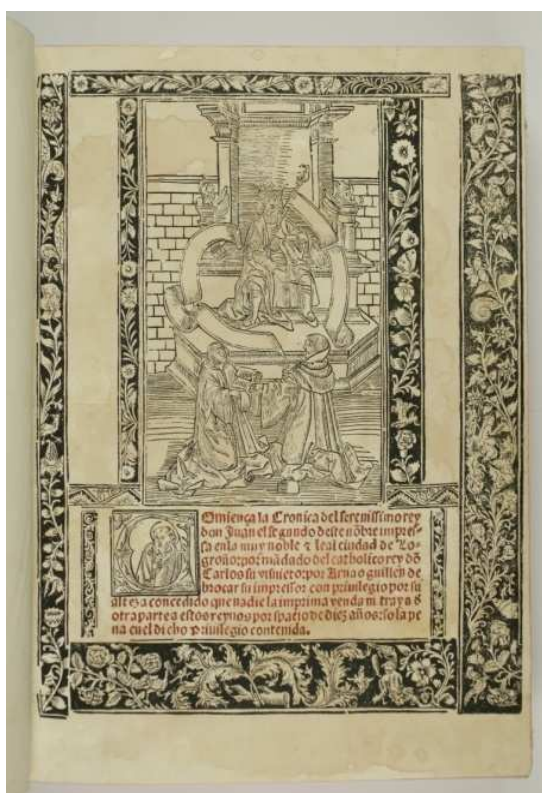 Comiença la Cronica del serenissimo rey
don Juan el segundo deste nõbre impres-
sa enla muy noble ⁊ leal ciudad de Lo-
groño: por mãdado del catholico rey dõ
Carlos su visnieto: por Arnao guillen de
brocar su impressor con privilegio por su
alteza concedido que nadie la imprima venda ni traya d
otra parte a estos reynos por spacio de diez años: so la pe
na enel dicho privilegio contenida.